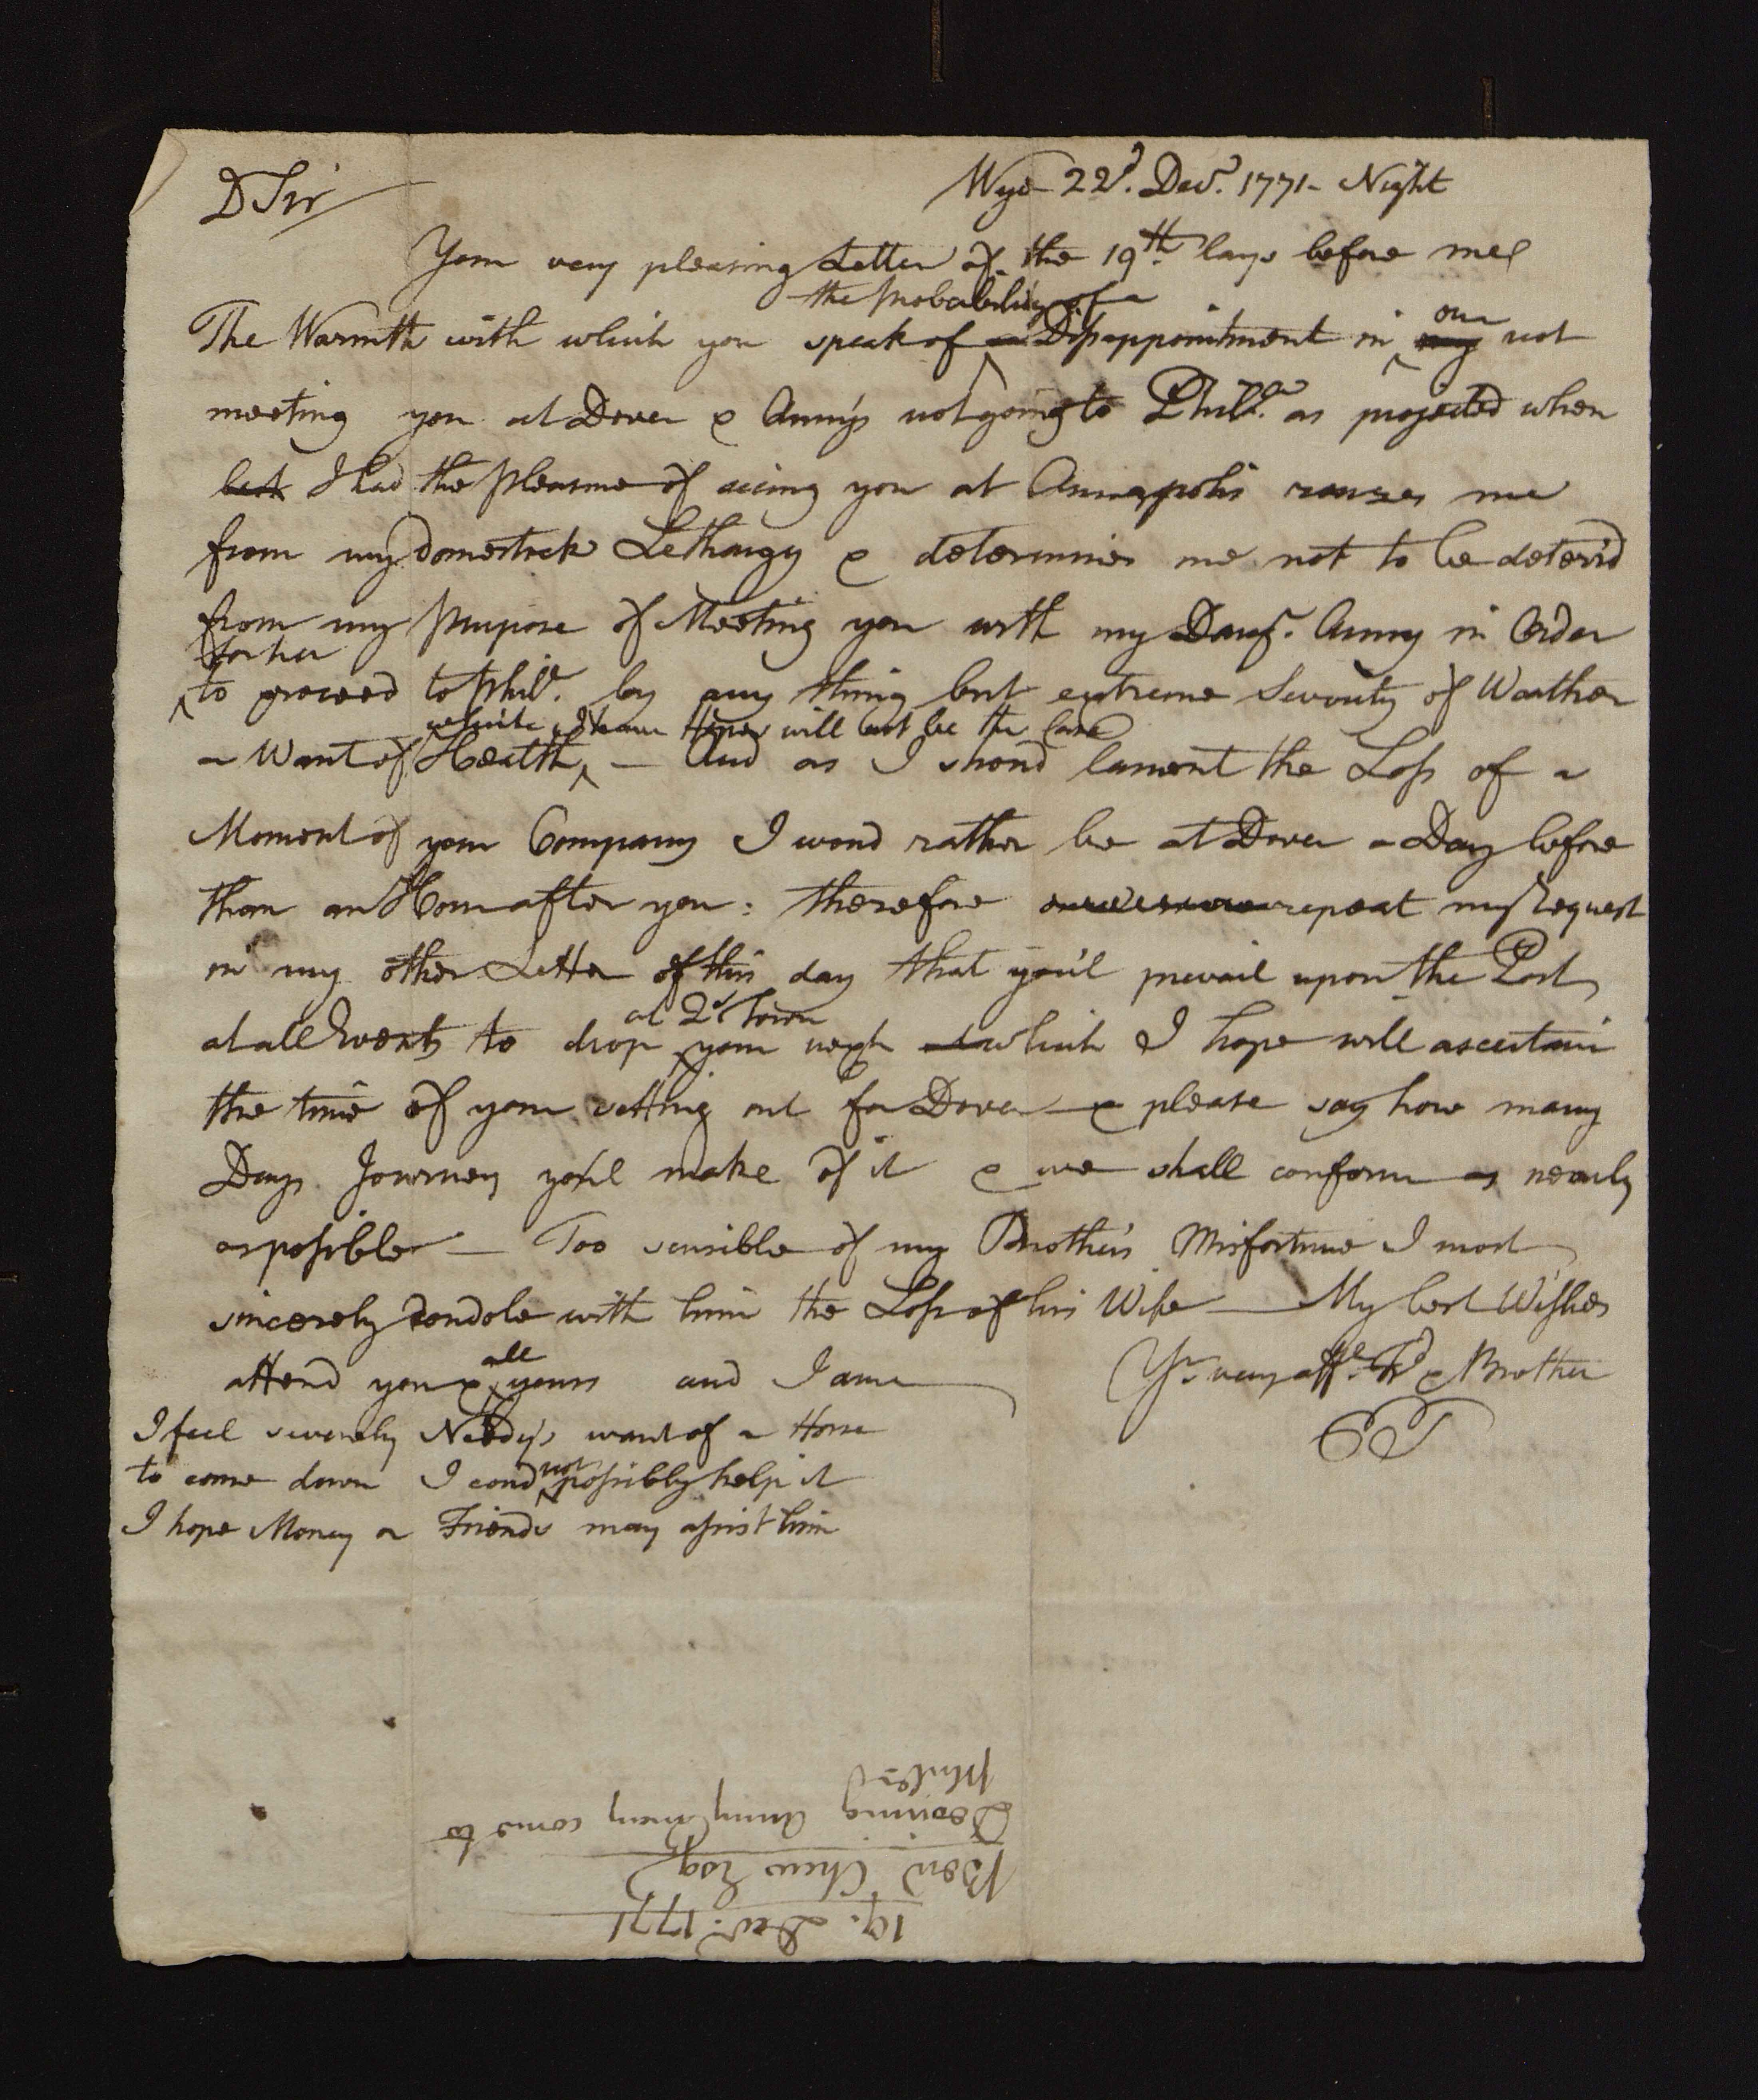 Wye 22d. Decr. 1771- Night
D Sir
Your very pleasing Letter of the 19th. lays before me
the probability of a
The Warmth with which you speak of a Disappointment in my our not
meeting you at Dover & Annys not going to Philda. as projected when
last I had the pleasure of seeing you at Annapolis rouzes me
from my domestick Lethargy & determines me not to be deterr'd
from my purpose of Meeting you with my Daugr. Anny in Order
for her
to proceed to Phila. by any thing but extreme Severity of Weather
which I have Hopes will not be the Case
or Want of Health, — And as I shoud lament the Loss of a
Moment of your Company I woud rather be at Dover a Day before
than an Hour after you: therefore repeat my Request
in my other Letter of this day that you'l prevail upon the Post
at Qs Town
at all Events to drop your next which I hope will ascertain
the time of your setting out for Dover — & please say how many
Days Journey you'l make of it & we shall conform as nearly
as possible — Too sensible of my Brother's Misfortune I most
sincerely condole with him the Loss of his Wife — My best Wishes
attend you & all yours and I am
Yr. very affe. Fd & Brother
ET
I feel severely Neddy's want of a Horse
to come down I coud not possibly help it
I hope Money or Friends may assist him
19. Decr. 1771
Benj Chew Esqr
Desiring Anny may come to
Philada